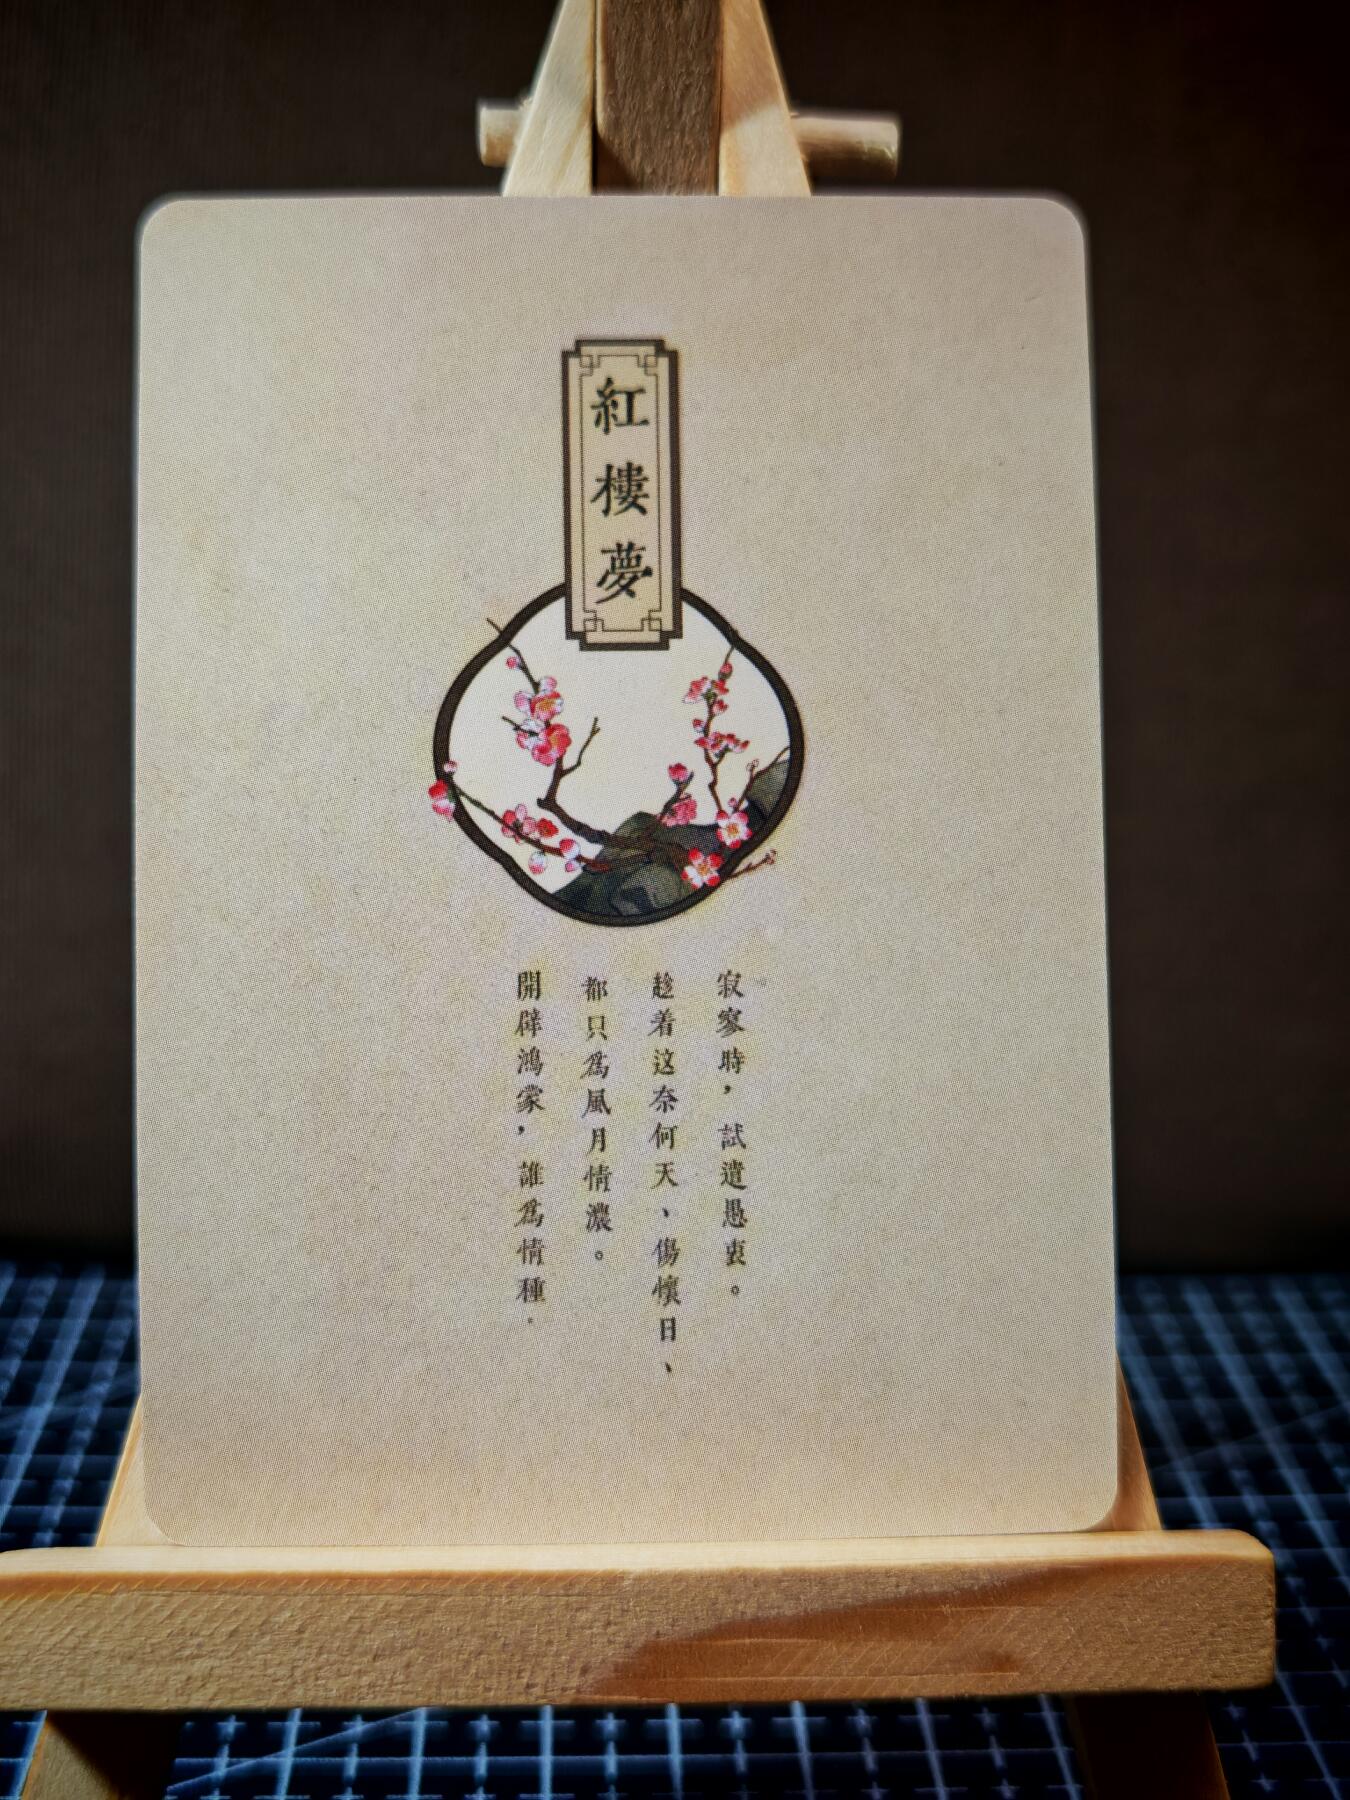 紅樓夢
開辟鴻蒙，誰爲情種。
都只爲風月情濃。
趁着这奈何天、傷懷日、
寂寥時，試遣愚衷。